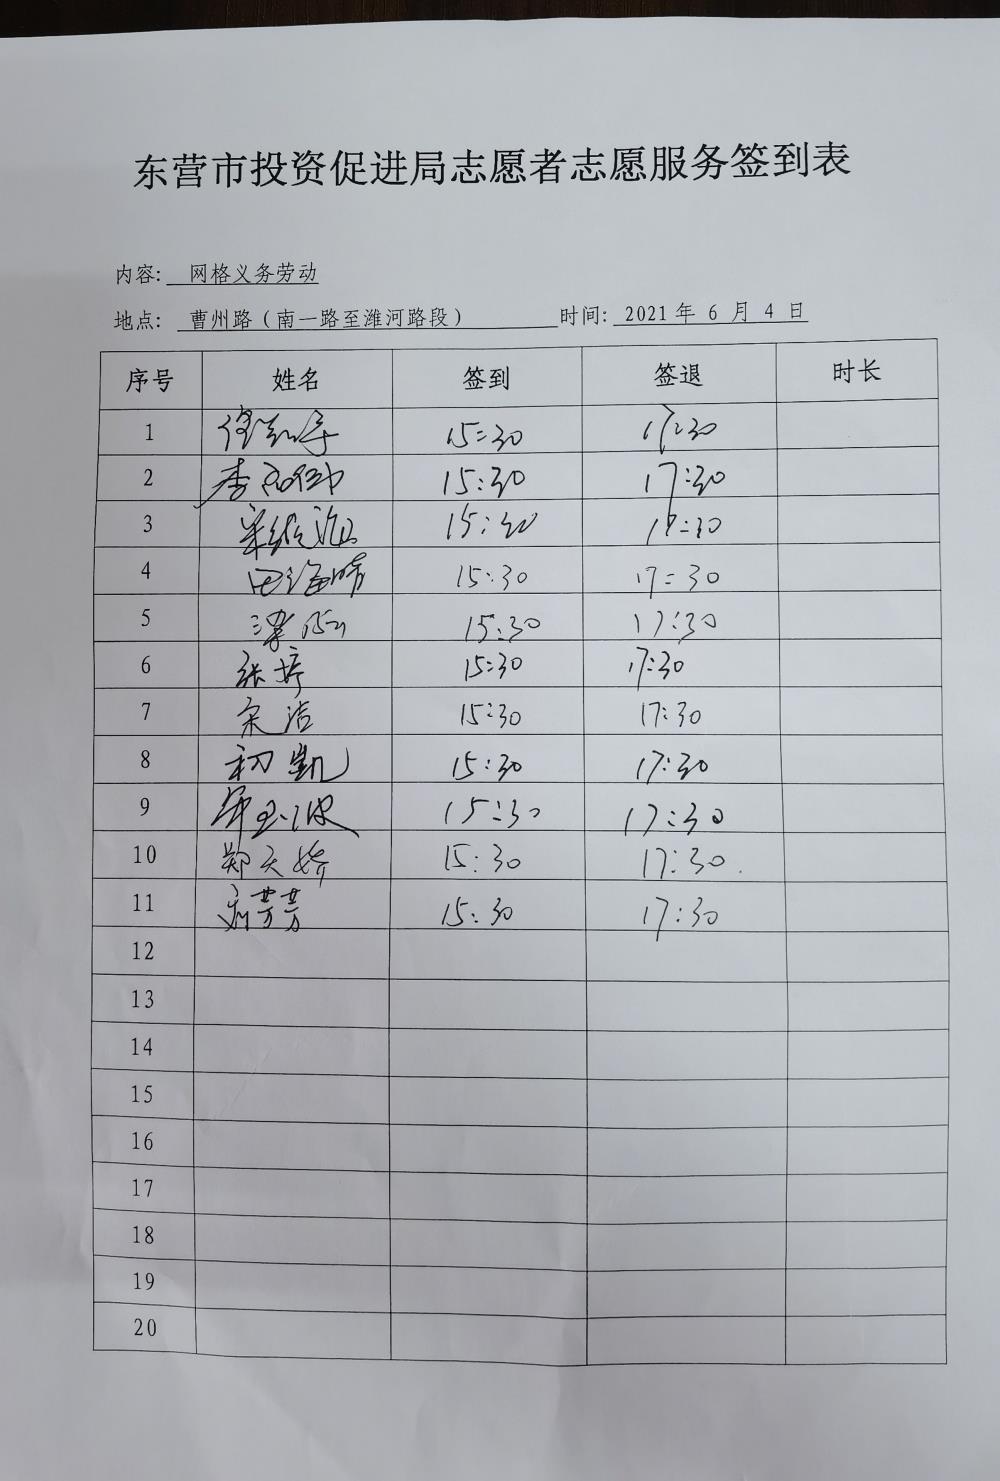 东营市投资促进局志愿者志愿服务签到表
内容: 网格义务劳动
地点: 曹州路（南一路至潍河路段） 时间: 2021 年 6 月 4 日
序号 姓名 签到 签退 时长
1 15:30 17:30
2 15:30 17:30
3 15:30 17:30
4 田海晴 15:30 17:30
5 15:30 17:30
6 张婷 15:30 17:30
7 宋洁 15:30 17:30
8 初凯 15:30 17:30
9 15:30 17:30
10 郑天娇 15:30 17:30
11 芳芳 15:30 17:30
12
13
14
15
16
17
18
19
20